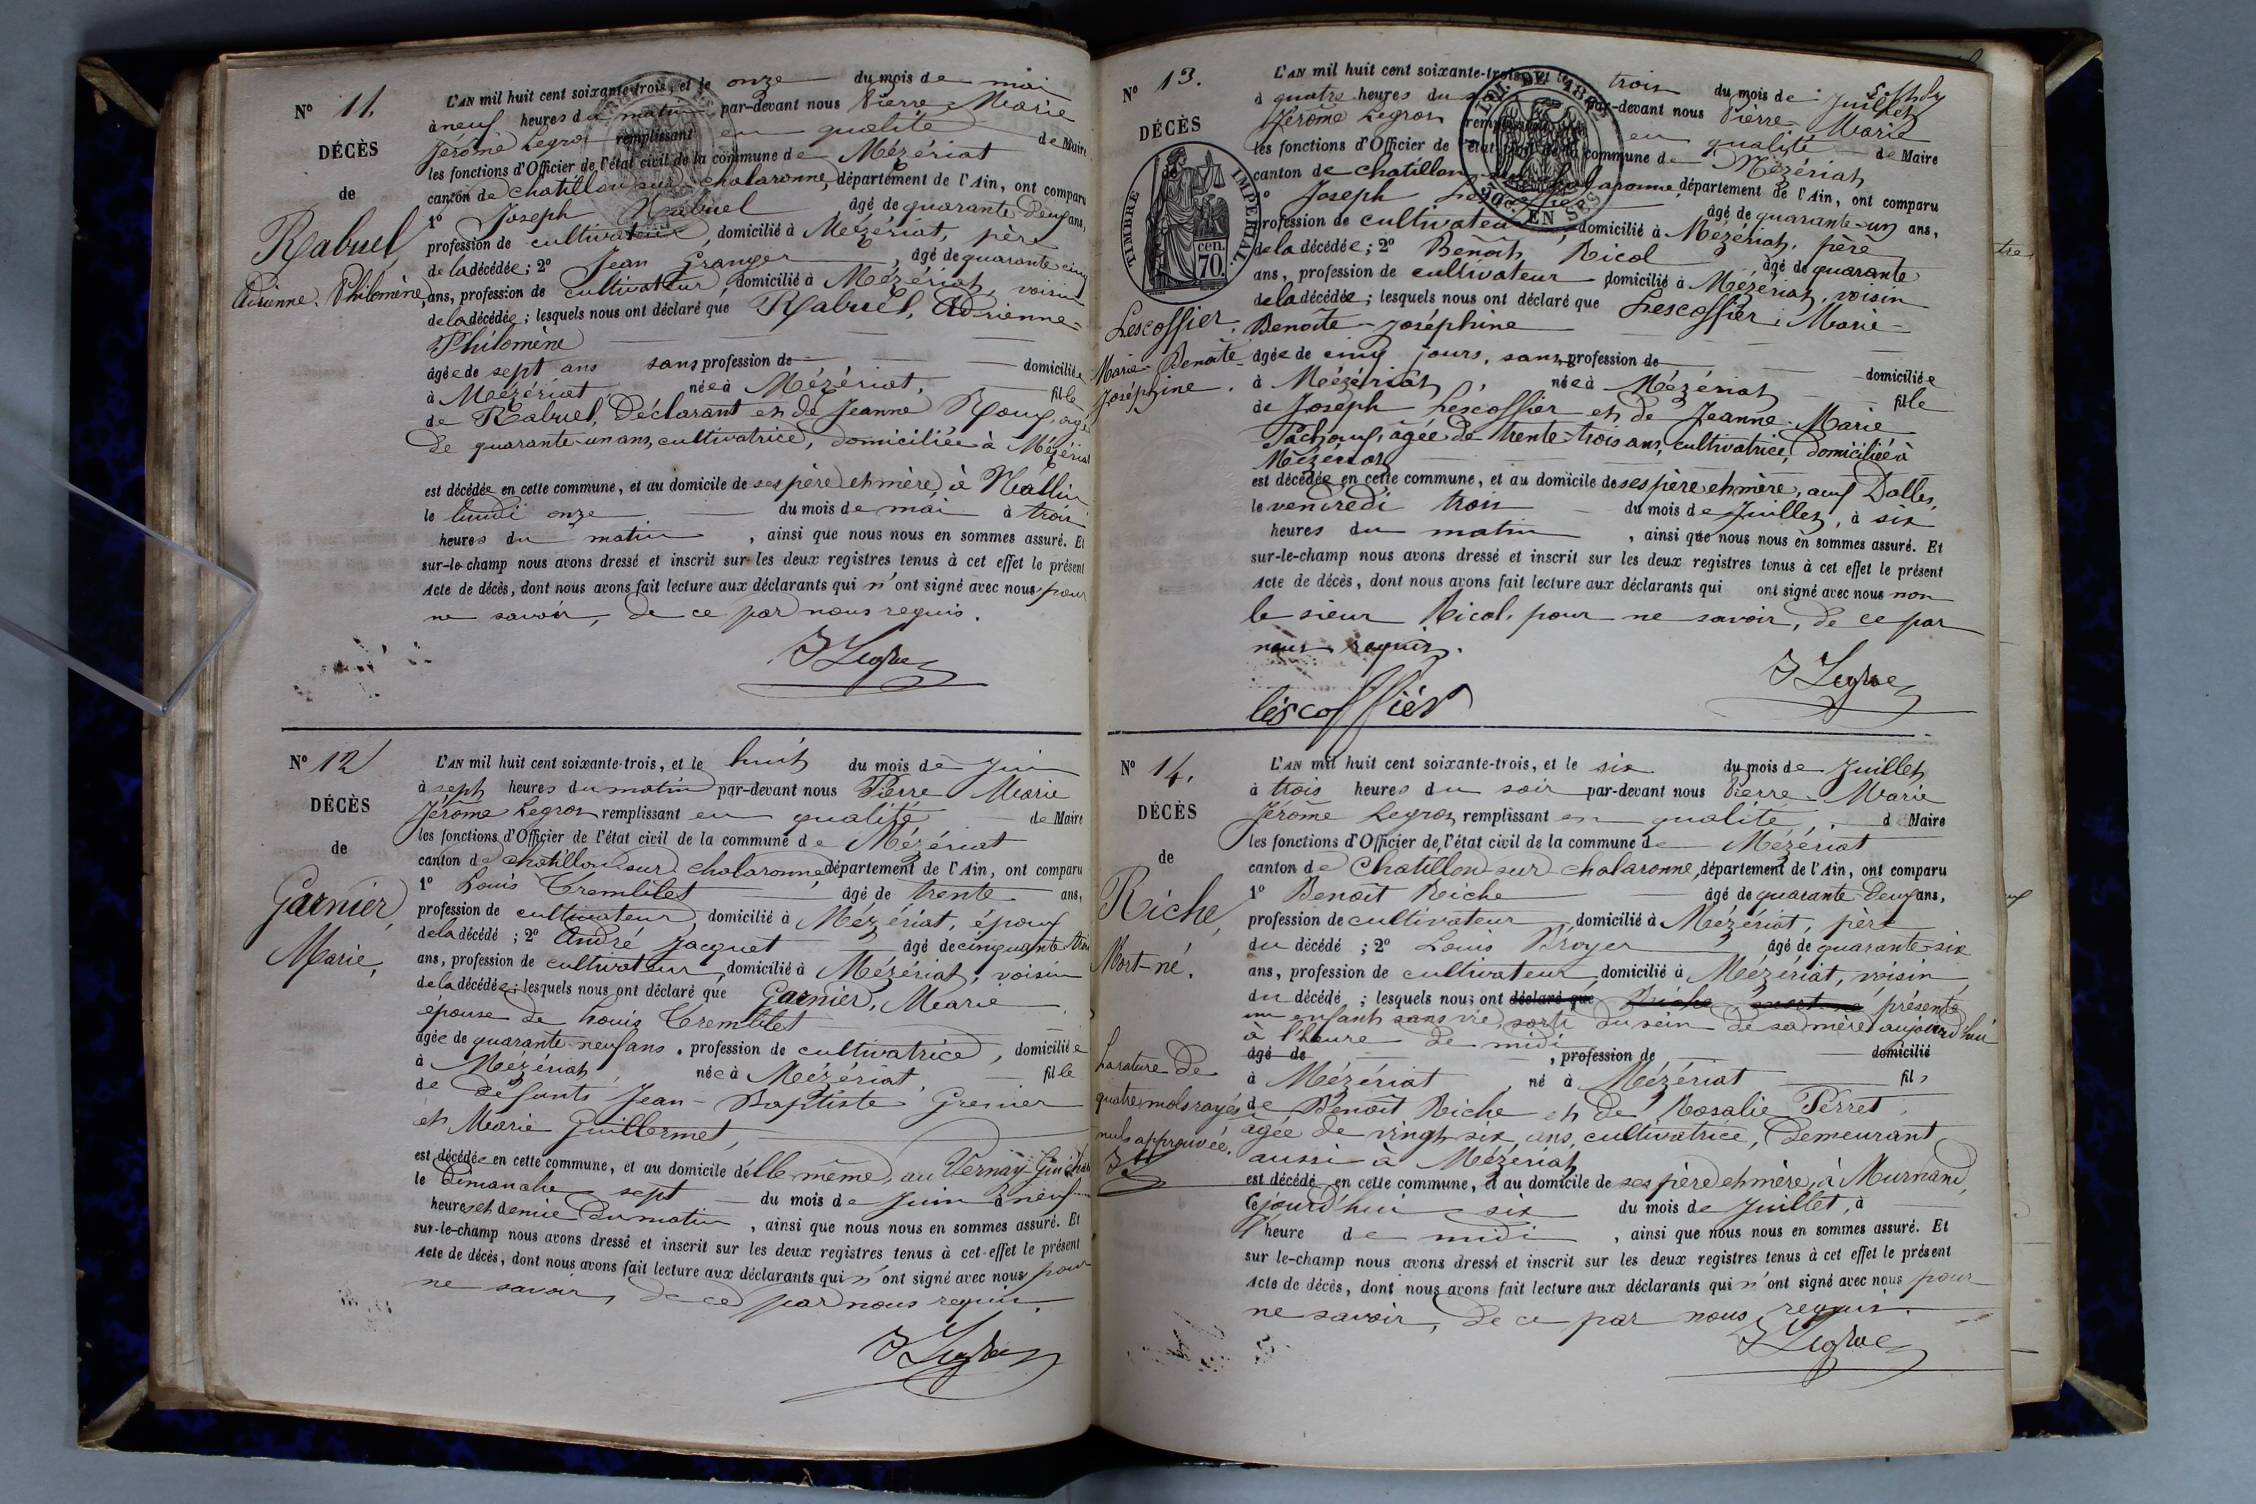 N° 11.
DÉCÈS
de
Rabuel,
Adrienne-Philomène,
L'AN mil huit cent soixante-trois, et le onze du mois de mai
à neuf heures du matin par-devant nous Pierre-Marie
Jérôme Legros remplissant en qualité de Maire
les fonctions d'Officier de l'état civil de la commune de Mézériat
canton de chatillon sur chalaronne, département de l'Ain, ont comparu
1° Joseph Rabuel âgé de quarante deux ans,
profession de cultivateur, domicilié à Mézériat, père
de la décédée; 2° Jean Granger, âgé de quarante cinq
ans, profession de cultivateur, domicilié à Mézériat, voisin
de la décédée; lesquels nous ont déclaré que Rabuel, Adrienne-
Philomène
âgée de sept ans sans profession de domiciliée
à Mézériat, née à Mézériat, fille
de Rabuel, Déclarant et de Jeanne Roux, agée
de quarante-un ans, cultivatrice, domiciliée à Mézériat
est décédée en cette commune, et au domicile de ses père et mère, à
le lundi onze du mois de mai à trois
heures du matin, ainsi que nous nous en sommes assuré. Et
sur-le-champ nous avons dressé et inscrit sur les deux registres tenus à cet effet le présent
Acte de décès, dont nous avons fait lecture aux déclarants qui n'ont signé avec nous pour
ne savoir, de ce par nous requis.
J Legros
N° 12
DÉCÈS
de
Garnier,
Marie,
L'AN mil huit cent soixante-trois, et le huit du mois de Juin
à sept heures du matin par-devant nous Pierre Marie
Jérôme Legros remplissant en qualité de Maire
les fonctions d'Officier de l'état civil de la commune de Mézériat
canton de chatillon sur chalaronne, département de l'Ain, ont comparu
1° Louis Tremblet âgé de trente ans,
profession de cultivateur, domicilié à Mézériat, époux
de la décédé; 2° André Jacquet âgé de cinquante
ans, profession de cultivateur, domicilié à Mézériat, voisin
de la décédée; lesquels nous ont déclaré que Garnier, Marie
épouse de Louis Tremblet
agée de quarante-neuf ans, profession de cultivatrice, domiciliée
à Mézériat, née à Mézériat, fille
de défunts Jean-Baptiste Grenier
et Marie Guillermet,
est décédée en cette commune, et au domicile d'elle même, au Vernay
le Dimanche sept du mois de Juin à neuf
heures et demie du matin, ainsi que nous nous en sommes assuré. Et
sur-le-champ nous avons dressé et inscrit sur les deux registres tenus à cet effet le présent
Acte de décès, dont nous avons fait lecture aux déclarants qui n'ont signé avec nous pour
ne savoir, de ce par nous requis.
J Legros
N° 13.
DÉCÈS
TIMBRE IMPÉRIAL.
70. cen.
LOI DE 1862
2 DES. EN SUS
Lescoffier,
Marie-Benoîte
Joséphine.
L'AN mil huit cent soixante-trois, et le trois du mois de Juillet
à quatre heures du par-devant nous Pierre-Marie
Jérôme Legros remplissant en qualité de Maire
les fonctions d'Officier de l'état civil de la commune de Mézériat
canton de chatillon sur chalaronne, département de l'Ain, ont comparu
1° Joseph Lescoffier âgé de quarante-un ans,
profession de cultivateur, domicilié à Mézériat, père
de la décédée; 2° Benoît Ricol âgé de quarante
ans, profession de cultivateur domicilié à Mézériat, voisin
de la décédée; lesquels nous ont déclaré que Lescoffier, Marie-
Benoîte-Joséphine
âgée de cinq jours, sans profession de domiciliée
à Mézériat, née à Mézériat fille
de Joseph Lescoffier et de Jeanne-Marie
Pachoux, âgée de trente-trois ans, cultivatrice, domiciliée à
Mézériat
est décédée en cette commune, et au domicile de ses père et mère, aux Dalles,
le vendredi trois du mois de Juillet, à six
heures du matin, ainsi que nous nous en sommes assuré. Et
sur-le-champ nous avons dressé et inscrit sur les deux registres tenus à cet effet le présent
Acte de décès, dont nous avons fait lecture aux déclarants qui ont signé avec nous non
le sieur Ricol, pour ne savoir, de ce par
nous requis.
J Legros
léscoffiér
N° 14.
DÉCÈS
de
Riche,
Mort-né.
La rature de
quatre mots rayés
nuls approuvée.
L'AN mil huit cent soixante-trois, et le six du mois de Juillet
à trois heures du soir par-devant nous Pierre-Marie
Jérôme Legros remplissant en qualité, d Maire
les fonctions d'Officier de l'état civil de la commune de Mézériat
canton de Chatillon sur chalaronne, département de l'Ain, ont comparu
1° Benoît Reiche âgé de quarante deux ans,
profession de cultivateur, domicilié à Mézériat, père
du décédé; 2° Louis Broyer âgé de quarante-six
ans, profession de cultivateur, domicilié à Mézériat, voisin
du décédé; lesquels nous ont déclaré que Riche mort-né présenté
un enfant sans vie, sorti du sein de sa mère aujourd'hui
à l'heure de midi
âgé de, profession de domicilié
à Mézériat, né à Mézériat fils
de Benoît Reiche et de Rosalie Perret,
agée de vingt-six ans, cultivatrice, Demeurant
aussi à Mézériat
est décédé en cette commune, et au domicile de ses père et mère, à Murnand,
ce jourd'hui six du mois de Juillet, à
l'heure de midi, ainsi que nous nous en sommes assuré. Et
sur le-champ nous avons dressé et inscrit sur les deux registres tenus à cet effet le présent
Acte de décès, dont nous avons fait lecture aux déclarants qui n'ont signé avec nous pour
ne savoir, de ce par nous requis.
J Legros